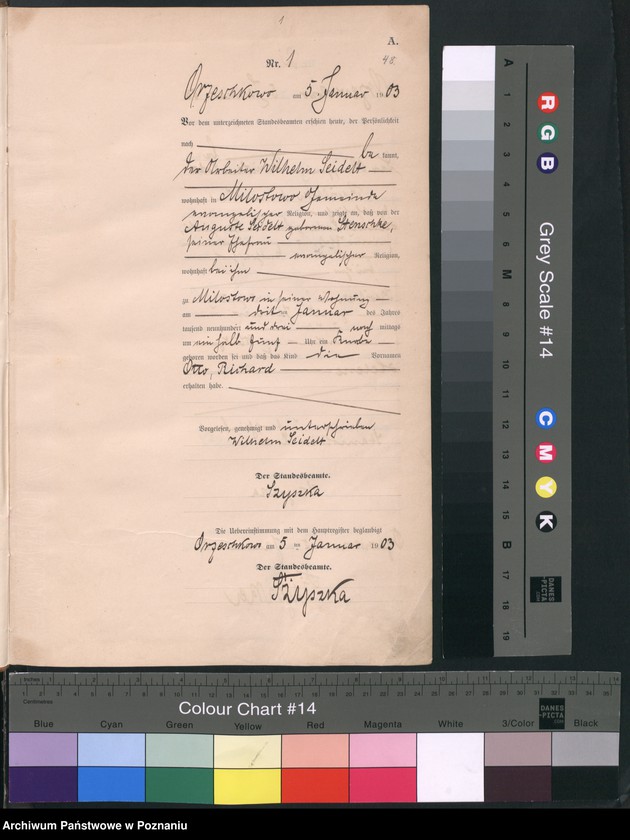 1
A.
Nr. 1
48.
Orzeschkowo am 5 ten Januar 1903
Vor dem unterzeichneten Standesbeamten erschien heute, der Persönlichkeit
nach be kannt,
der Arbeiter Wilhelm Seidelt
wohnhaft in Milostowo Gemeinde
evangelischer Religion, und zeigte an, daß von der
Auguste Seidelt geborenen Stenschke,
seiner Ehefrau
evangelischer Religion,
wohnhaft bei ihm
zu Milostowo in seiner Wohnung
am ten Januar des Jahres
tausend neunhundert und drei nach mittags
um ein halb fünf Uhr ein Knabe
geboren worden sei und daß das Kind die Vornamen
Otto, Richard
erhalten habe.
Vorgelesen, genehmigt und unterschrieben
Wilhelm Seidelt
Der Standesbeamte.
Szyszka
Die Uebereinstimmung mit dem Hauptregister beglaubigt
Orzeschkowo am 5 ten Januar 1903
Der Standesbeamte.
Szyszka
A 1 2 3 4 5 6 M 8 9 10 11 12 13 14 15 B 17 18 19
R
G
B
Grey Scale #14
C
M
Y
K
DANES
-PICTA
.COM
Inches
Centimetres
Colour Chart #14
Blue Cyan Green Yellow Red Magenta White 3/Color Black
DANES
-PICTA
.COM
Archiwum Państwowe w Poznaniu